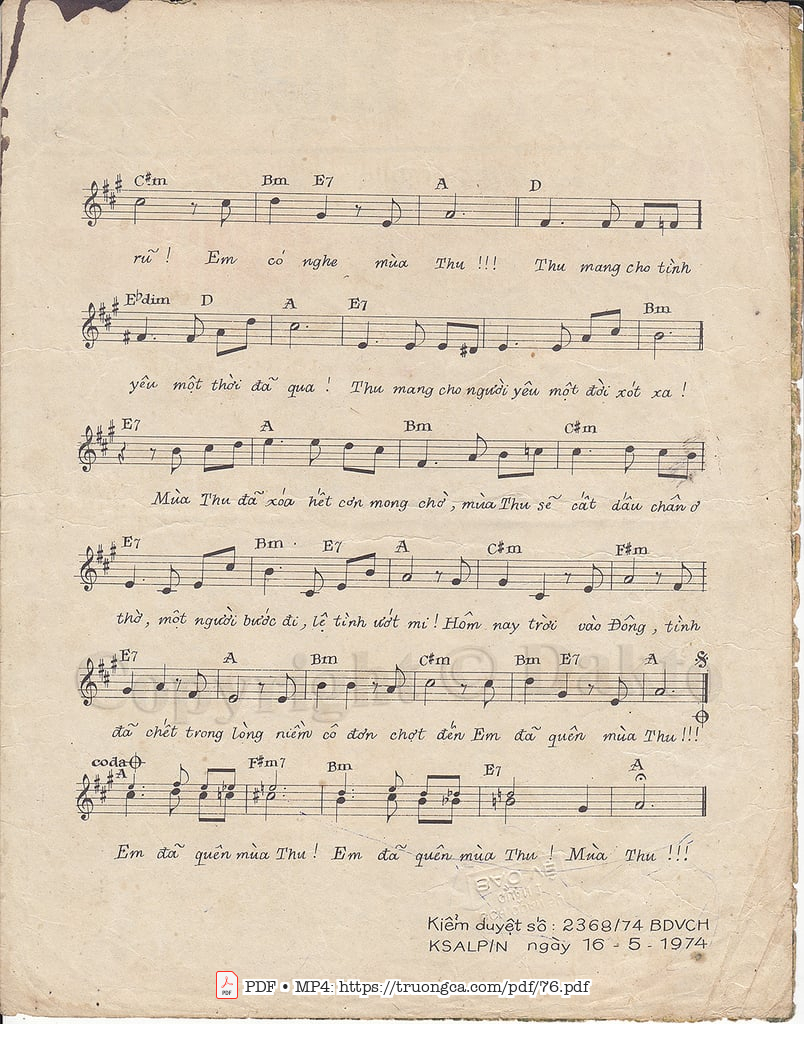 C#m Bm E7 A D
rũ ! Em có nghe mùa Thu !!! Thu mang cho tình
E♭dim D A E7 Bm
yêu một thời đã qua ! Thu mang cho người yêu một đời xót xa !
E7 A Bm C#m
Mùa Thu đã xóa hết cơn mong chờ, mùa Thu sẽ cất dấu chân ơ
E7 Bm E7 A C#m F#m
thờ, một người bước đi, lệ tình ướt mi ! Hôm nay trời vào Đông, tình
E7 A Bm C#m Bm E7 A
Copyright © Dakto
đã chết trong lòng niềm cô đơn chợt đến Em đã quên mùa Thu !!!
coda A F#m7 Bm E7 A
Em đã quên mùa Thu ! Em đã quên mùa Thu ! Mùa Thu !!!
Kiểm duyệt số : 2368/74 BDVCH
KSALP/N ngày 16 - 5 - 1974
PDF PDF • MP4: https://truongca.com/pdf/76.pdf